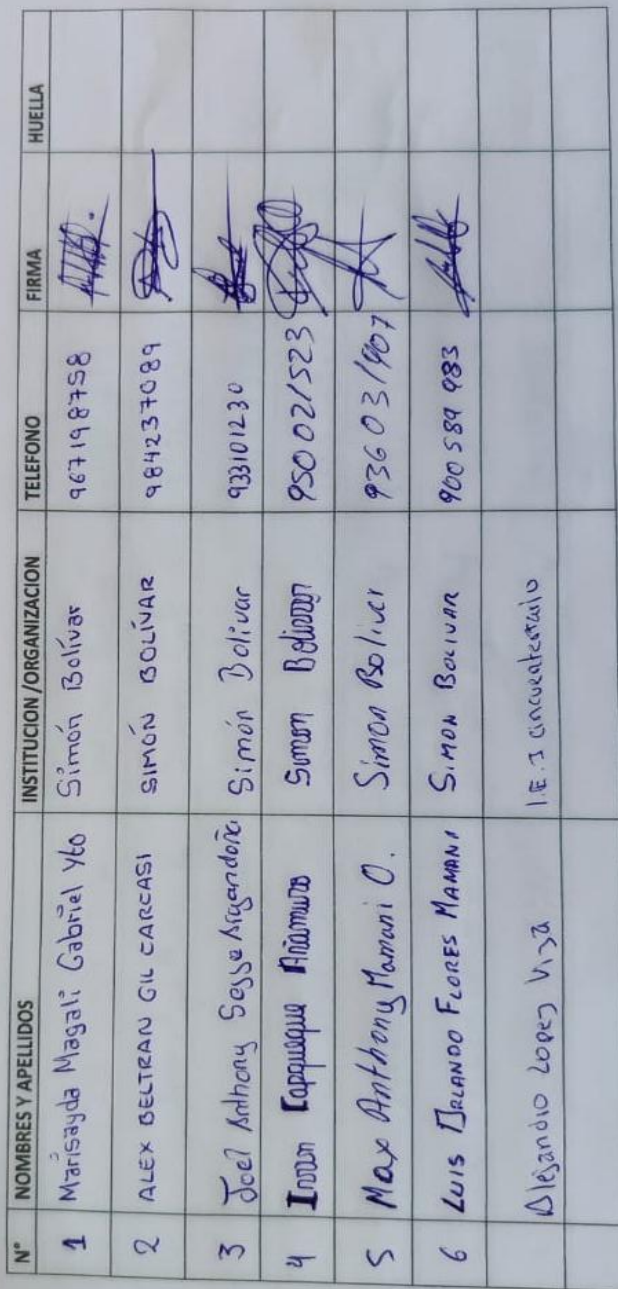 N° NOMBRES Y APELLIDOS INSTITUCION /ORGANIZACION TELEFONO FIRMA HUELLA
1 Marisayda Magali Gabriel Yto Simón Bolívar 967198758
2 ALEX BELTRAN GIL CARCASI SIMÓN BOLÍVAR 984237089
3 Joel Anthony Simón Bolivar 933101230
4 Simon 950021523
5 Max Anthony Mamani O. Simon Boliver 936031907
6 LUIS ORLANDO FLORES MAMANI SIMON BOLIVAR 900589983
Alejandro Lopez I.E.I cincuentenario